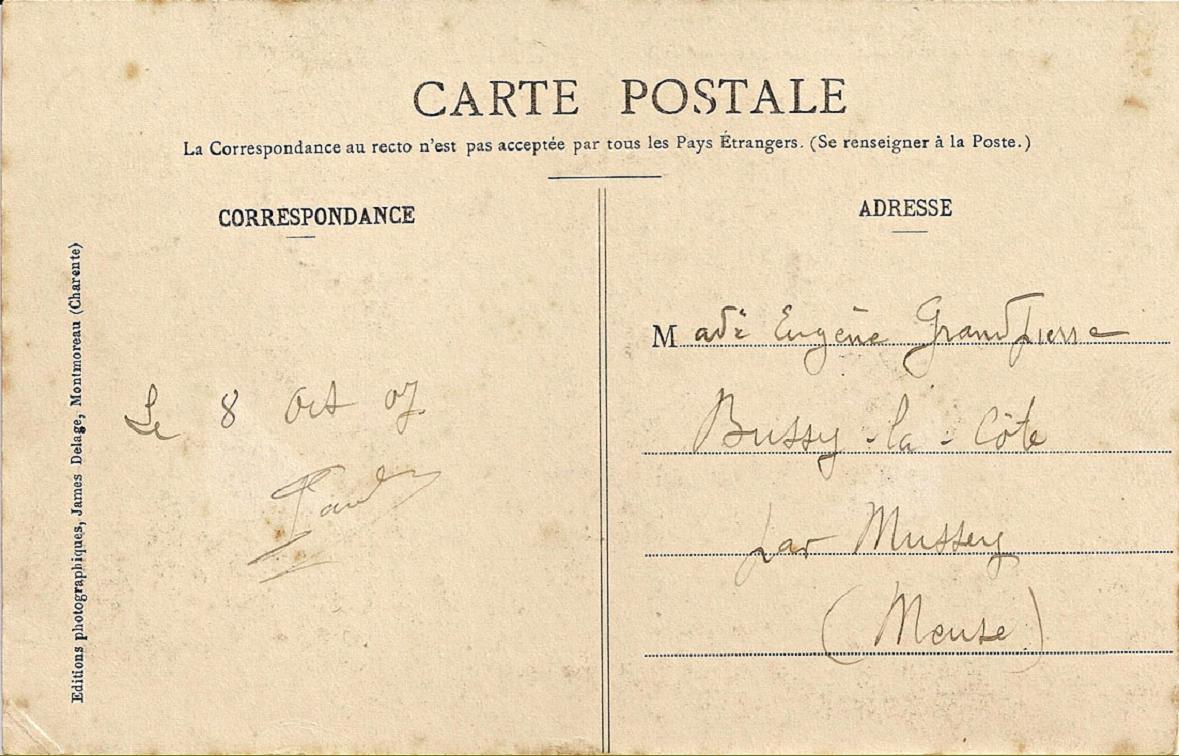 CARTE POSTALE
La Correspondance au recto n'est pas acceptée par tous les Pays Étrangers. (Se renseigner à la Poste.)
CORRESPONDANCE
Editions photographiques, James Delage, Montmoreau (Charente)
Le 8 Oct 07
ADRESSE
Made Eugène Grandpierre
Bussy-la-Côte
par Mussey
(Meuse)